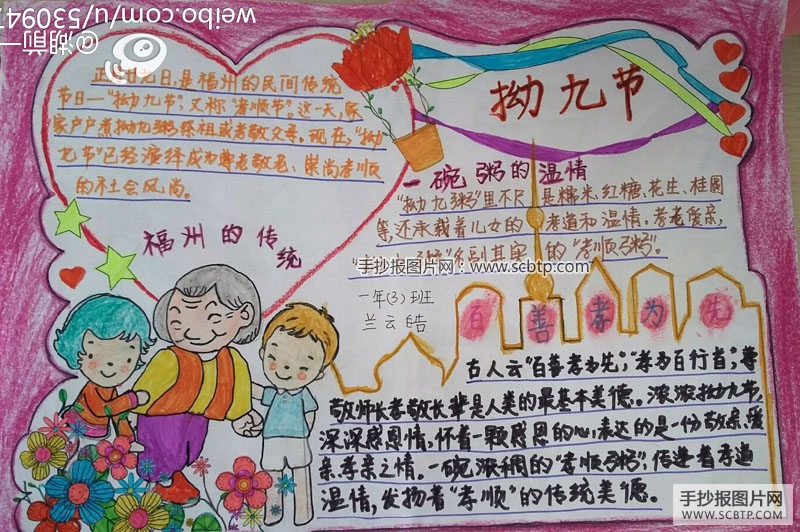 weibo.com/u/53094
@湖前一
正月廿九日,是福州的民间传统
节日—"拗九节",又称"孝顺节"。这一天,家
家户户煮拗九粥祭祖或者敬父母。现在,"拗
九节"已经演绎成为尊老敬老、崇尚孝顺
的社会风尚。
福州的传统
拗九节
一碗粥的温情
"拗九粥"里不只是糯米、红糖、花生、桂圆
等,还承载着儿女的孝道和温情,孝老爱亲,
名副其实的"孝顺粥"。
手抄报图片网:www.scbtp.com
一年(3)班
兰云皓
百善孝为先
古人云"百善孝为先";"孝为百行首";尊
敬师长孝敬长辈是人类的最基本美德。浓浓拗九节,
深深感恩情,怀着一颗感恩的心,表达的是一份敬亲,爱
亲,孝亲之情。一碗浓稠的"孝顺粥",传递着孝道
温情,发扬着"孝顺"的传统美德。
手抄报图片网
SCBTP.COM